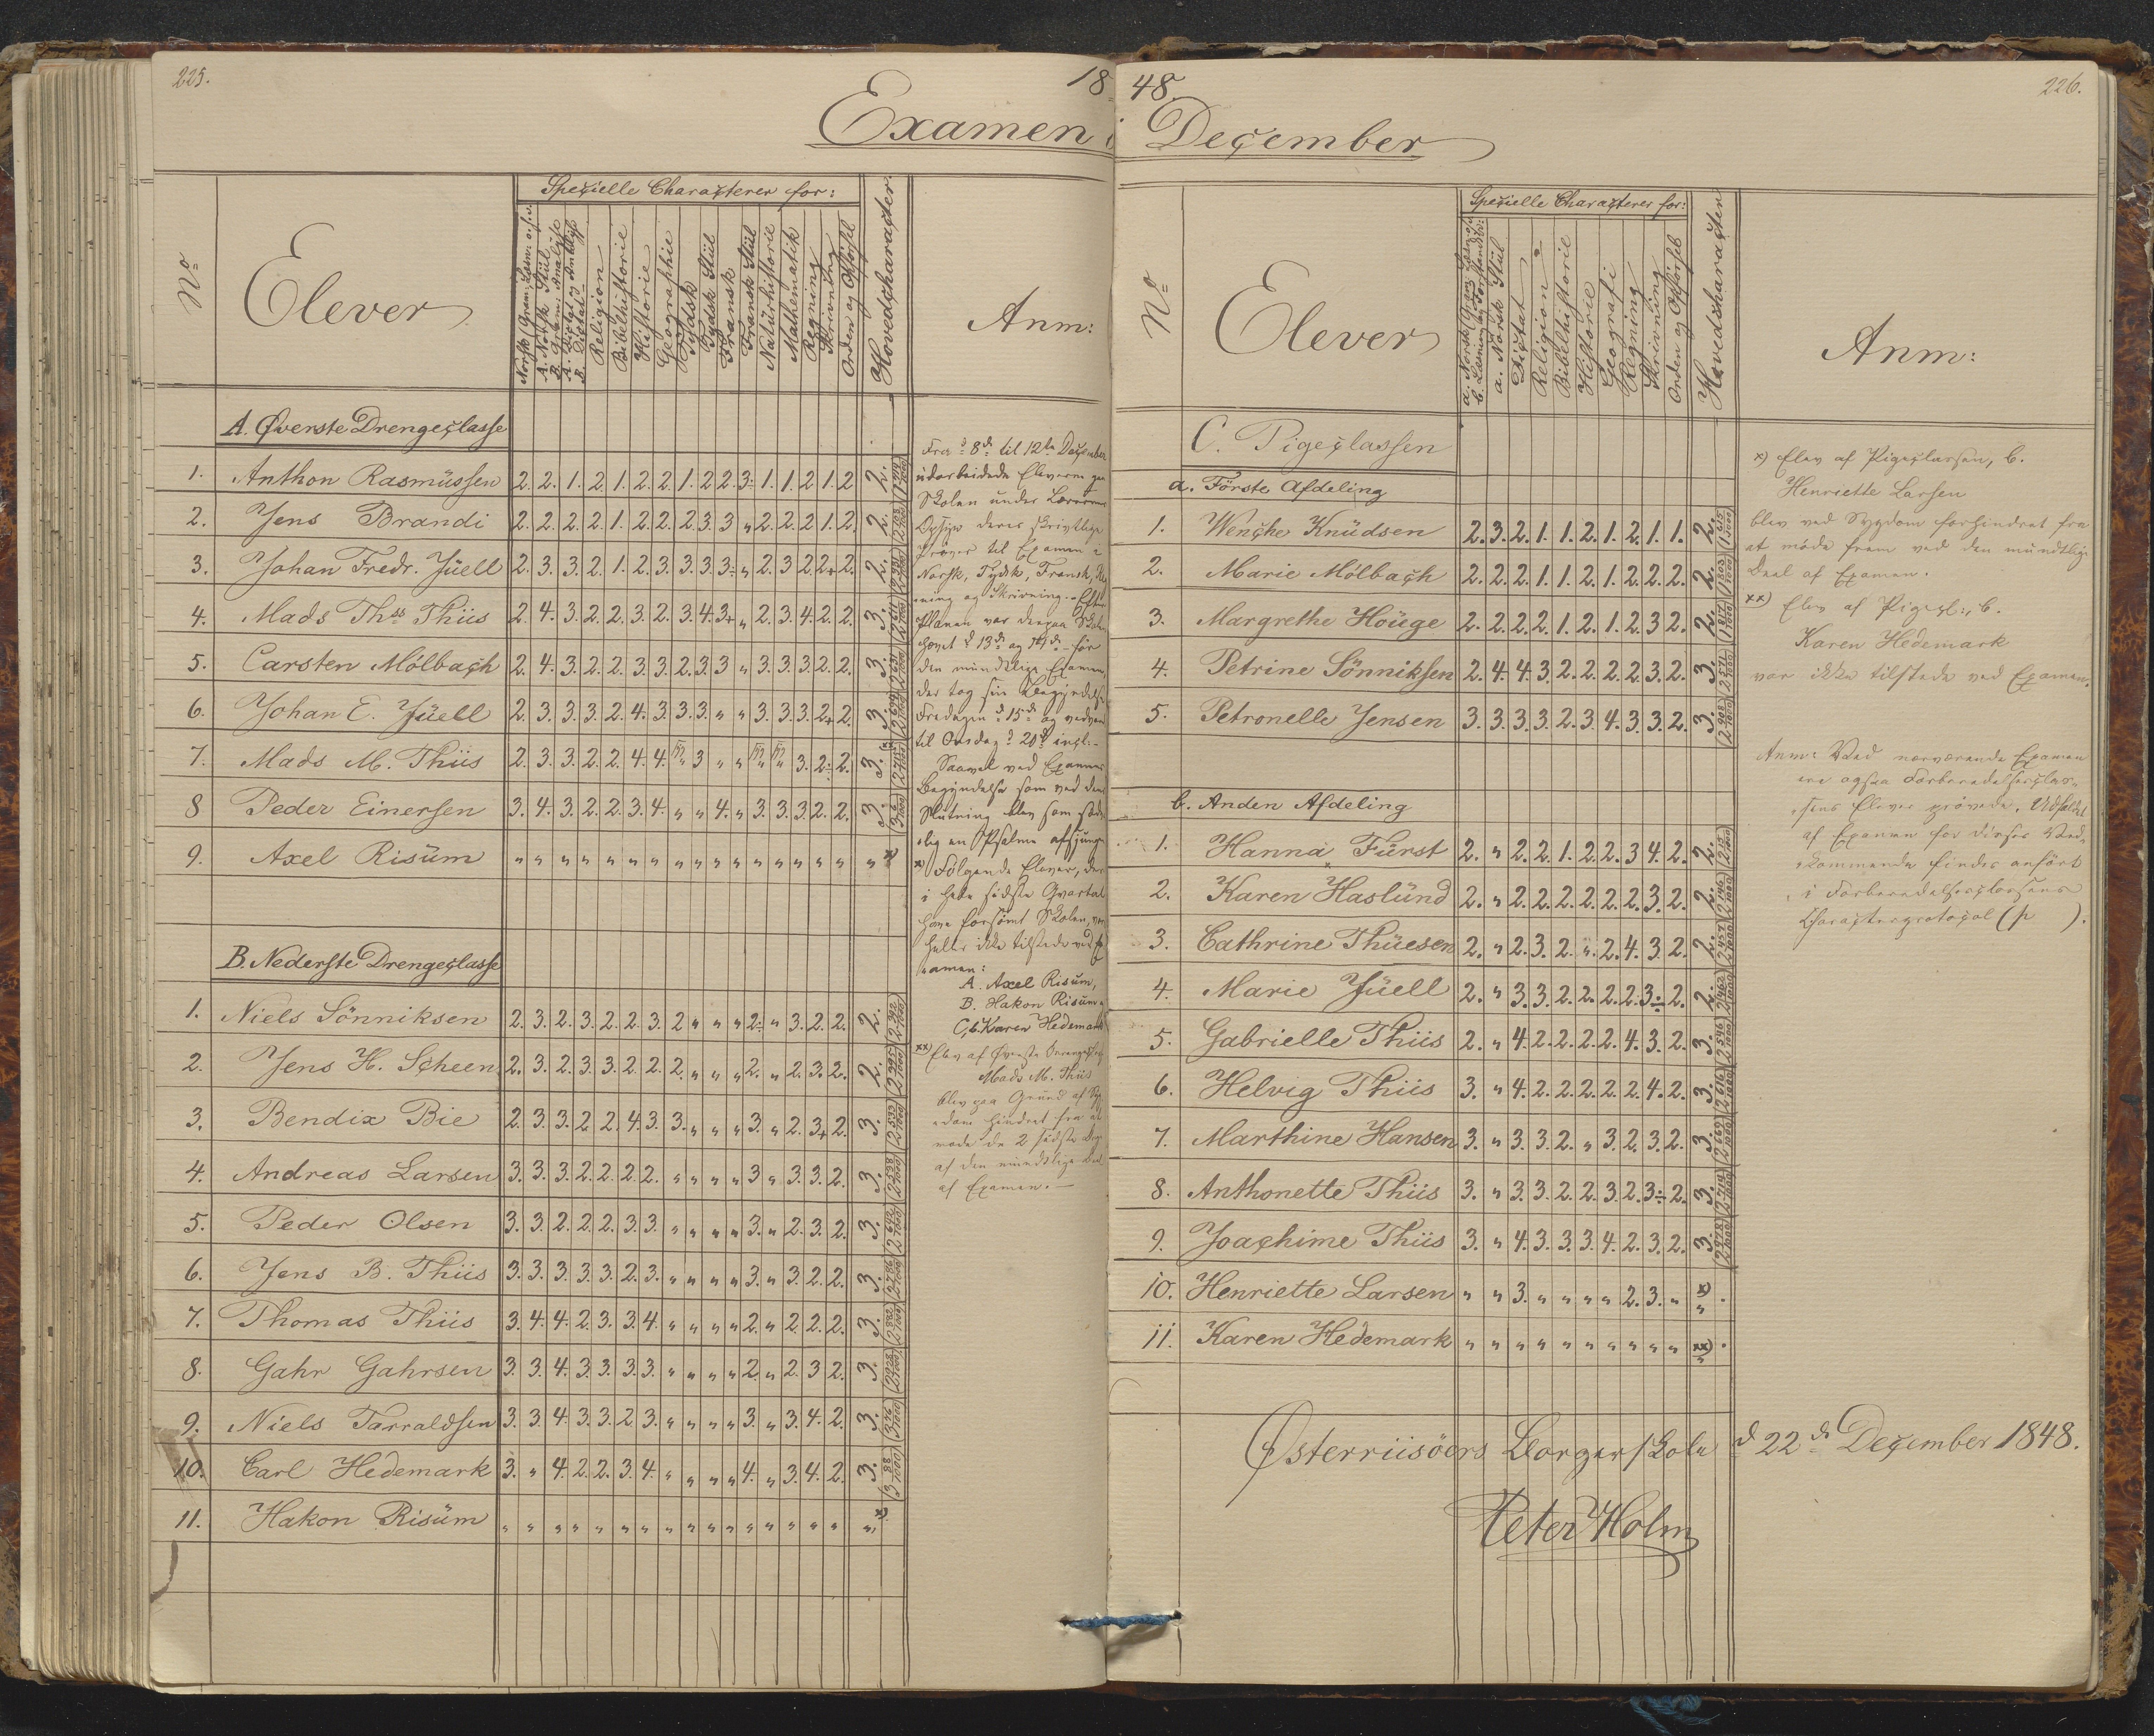 225.
18
Examen i
Specielle Characterer for:
No
Elever
Religion
Bibelhistorie
Historie
Geographie
Tydsk
Tydsk Stiil
Fransk
Fransk Stiil
Naturhistorie
Mathematik
Regning
Skrivning
Orden og Opførsel
Hovedcharacter.
Anm:
A. Øverste Drengeclasse
1. Anthon Rasmüssen 2. 2. 1. 2. 1. 2. 2. 1. 2 2 3÷ 1. 1. 2 1. 2 2.
2. Jens Brandi 2. 2. 2. 2. 1. 2. 2. 2. 3. 3 „ 2. 2. 2 1. 2. 2.
3. Johan Fredr. Jüell 2. 3. 3. 2. 1. 2. 3. 3. 3. 3÷ „ 2. 3. 2 2+ 2. 2.
4. Mads Ths Thiis 2. 4. 3. 2. 2. 3. 2. 3. 4. 3+ „ 2. 3. 4. 2. 2. 3.
5. Carsten Mölbach 2. 4. 3. 2. 2. 3. 3. 2. 3. 3 „ 3. 3. 3. 2. 2. 3.
6. Johan E. Jüell 2. 3. 3. 3. 2. 4. 3. 3. 3. „ „ 3. 3. 3. 2+ 2. 3.
7. Mads M. Thiis 2. 3. 3. 2. 2. 4. 4. 3 „ „ 3. 2÷ 2. 3.
8 Peder Einersen 3. 4. 3. 2. 2. 3. 4. „ „ 4. „ 3. 3. 3. 2. 2. 3.
9. Axel Risüm „ „ „ „ „ „ „ „ „ „ „ „ „ „ „ „ „ x)
B. Nederste Drengeclasse
1. Niels Sönniksen 2. 3. 2. 3. 2. 2. 3. 2 „ „ „ 2÷ „ 3. 2. 2. 2.
2. Jens H. Scheen 2. 3. 2. 3. 3. 2. 2. 2. „ „ „ 2. „ 2. 3. 2. 2.
3. Bendix Bie 2. 3. 3. 2. 2. 4. 3. 3. „ „ „ 3. „ 2. 3+ 2. 3.
4. Andreas Larsen 3. 3. 3. 2. 2. 2. 2. „ „ „ „ 3 „ 3. 3. 2. 3.
5. Peder Olsen 3. 3. 2. 2. 2. 3. 3. „ „ „ „ 3. „ 2. 3. 2. 3.
6. Jens B. Thiis 3. 3. 3. 3. 3. 2. 3. „ „ „ „ 3. „ 3. 2. 2. 3.
7. Thomas Thiis 3. 4. 4. 2. 3. 3. 4. „ „ „ „ 2. „ 2. 2. 2. 3.
8. Gahr Gahrsen 3. 3. 4. 3. 3. 3. 3. „ „ „ „ 2. „ 2. 3 2. 3.
9. Niels Tarraldsen 3. 3. 4. 3. 3. 2. 3. „ „ „ „ 3. „ 3. 4. 2. 3.
10. Carl Hedemark 3. „ 4. 2. 2. 3. 4. „ „ „ „ 4. „ 3. 4. 2. 3.
11. Hakon Risüm „ „ „ „ „ „ „ „ „ „ „ „ „ „ „ „ „ x)
Fra d 8de til 12te December
udarbeidede Eleverne paa
Skolen under Lærernes
Opsyn deres skrivtlige
Prøver til Examen i
Norsk, Tydsk, Fransk,
ning og Skrivning. Efter
Planen var derpaa Skolen
hævet d 13de og 14de før
den mundtlige Examen,
der tog sin Begyndelse
Fredagen d 15de og vedvarede
til Onsdag d 20de incl:
Saavel ved Examens
Begyndelse som ved dens
Slutning blev som
lig en Psalme afsjunge
x) Følgende Elever, der
i hele sidste Qvartal
have forsømt Skolen, var
heller ikke tilstede ved Ex
amen:
A. Axel Risum,
B. Hakon Risum
C, b. Karen Hedemark
xx) Elev af Øverste Drengeclasse
Mads M. Thiis
blev paa Grund af Syg
dom hindret fra at
møde de 2 sidste Dage
af den mundtlige Deel
af Examen.
48.
226.
December
Specielle Characterer for:
No
Elever
a. Norsk Stiil
Dictat
Religion
Bibelhistorie
Historie
Geografi
Regning
Skrivning
Orden og Opførsel
Hovedcharacter
Anm:
C. Pigeclassen
a. Förste Afdeling
1. Wenche Knüdsen 2. 3. 2. 1. 1. 2. 1. 2. 1. 1. 2.
2. Marie Mölbach 2. 2. 2. 1. 1. 2. 1. 2. 2. 2. 2.
3. Margrethe Höuge 2. 2. 2. 2. 1. 2. 1. 2. 3 2. 2.
4. Petrine Sönniksen 2. 4. 4. 3. 2. 2. 2. 2. 3. 2. 3.
5. Petronelle Jensen 3. 3. 3. 3. 2. 3. 4. 3. 3. 2. 3.
b. Anden Afdeling
1. Hanna Fürst 2. „ 2. 2. 1. 2. 2. 3 4. 2. 2.
2. Karen Haslünd 2. „ 2. 2. 2. 2. 2. 2. 3. 2. 2.
3. Cathrine Thüesen 2. „ 2. 3. 2. „ 2. 4. 3. 2. 2.
4. Marie Jüell 2. „ 3. 3. 2. 2. 2. 2. 3÷ 2. 2.
5. Gabrielle Thiis 2. „ 4. 2. 2. 2. 2. 4. 3. 2. 3.
6. Helvig Thiis 3. „ 4. 2. 2. 2. 2. 2. 4. 2. 3.
7. Marthine Hansen 3. „ 3. 3. 2. „ 3. 2. 3. 2. 3.
8. Anthonette Thiis 3. „ 3. 3. 2. 2. 3. 2. 3÷ 2. 3.
9. Joachime Thiis 3. „ 4. 3. 3. 3. 4. 2. 3. 2. 3.
10. Henriette Larsen „ „ 3. „ „ „ „ 2. 3. „ x)
11. Karen Hedemark „ „ „ „ „ „ „ „ „ „ xx)
x) Elev af Pigeclassen, b.
Henriette Larsen
blev ved Sygdom forhindret fra
at möde frem ved den mündtlige
Deel af Examen.
xx) Elev af Pigecl:, b.
Karen Hedemark
var ikke tilstede ved Examen.
Anm: Ved nærværende Examen
ere ogsaa Forberedelsesclas-
sens Elever prövede. Udfaldet
af Examen for disses Ved-
kommende findes anfört
i Forberedelsesclassens
Characterprotocol (p ).
Østerriisöers Borgerskole d 22de December 1848.
Peter Holm